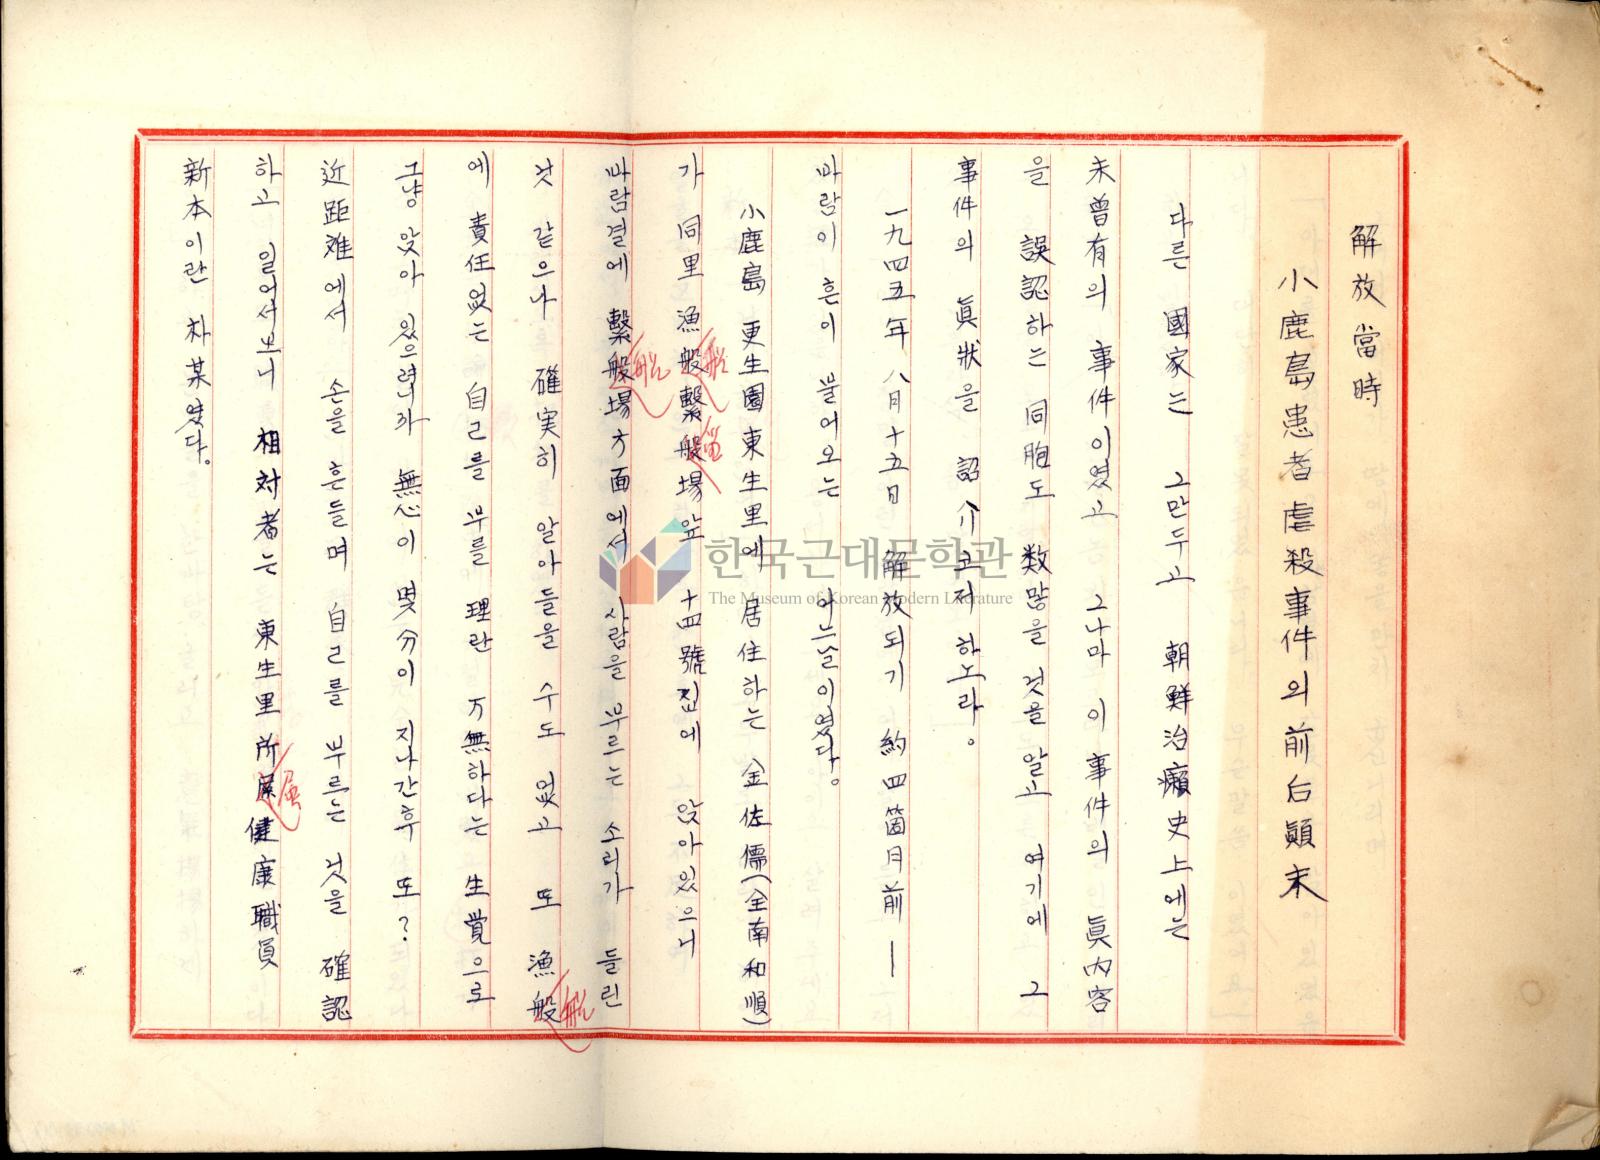 解放當時
小鹿島患者虐殺事件의前后顚末
다른 國家는 그만두고 朝鮮治癩史上에는
未曾有의 事件이였고 그나마 이 事件의 眞內容
을 誤認하는 同胞도 数많을 것을 알고 여기에 그
事件의 眞狀을 詔介코저 하노라。
一九四五年 八月十五日 解放되기 約四箇月前 —
바람이 흔이 불어오는 어느날이였다。
小鹿島 更生園東生里에 居住하는 金佐儒(全南和順)
가 同里 漁般繫般場앞 十四號집에 앉아있으니
船
留
바람결에 繫般場方面에서 사람을 부르는 소리가 들린
船
낫 같으나 確実히 알아들을 수도 없고 또 漁般
船
에 責任없는 自己를 부를 理란 万無하다는 生覚으로
그냥 앉아 있으려니까 無心이 몇分이 지나간후 또?
近距难에서 손을 흔들며 自己를 부르는 것을 確認
하고 일어서보니 相対者는 東生里所屎健康職員
屬
新本이란 朴某였다。
한국근대문학관
The Museum of Korean Modern Literature